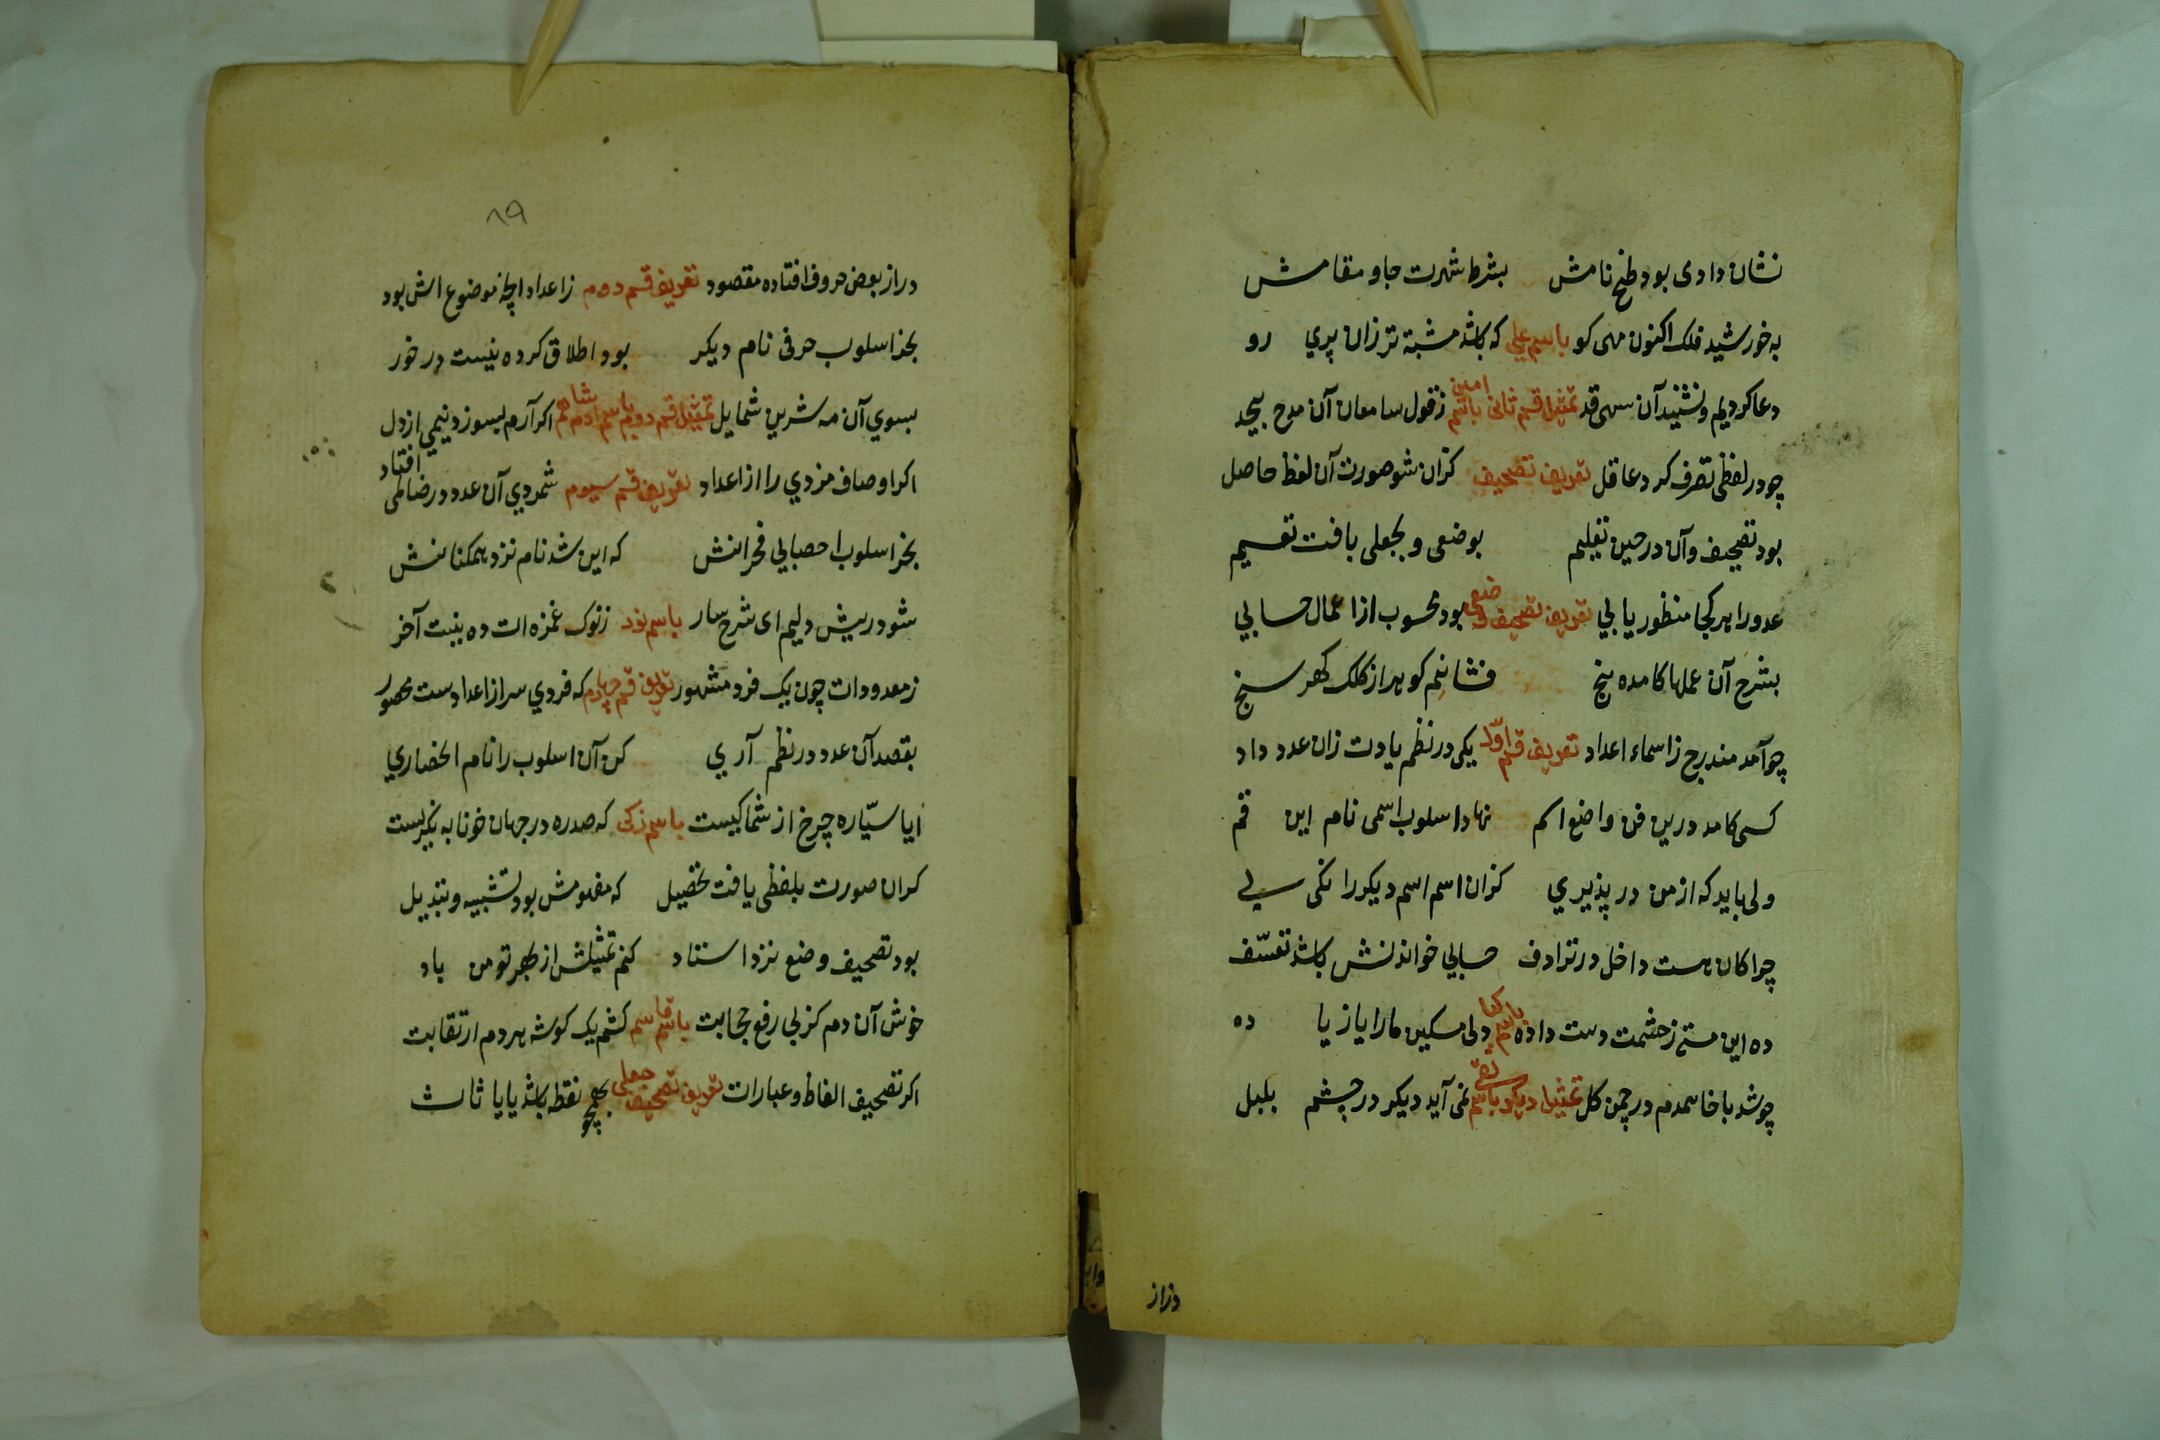 نشان دادی بود طنح نامش بشرط شهرت جا و مقامش
به خورشید فلک اکنون مهی کو باسم علی که باشد مشبه تر زان پری رو
دعا کردیم و نشنید آن سهی قد تمثیل قسم ثانی باسم امین ز قول سامعان آن مدح بیحد
چو در لفظی تصرف کرد عاقل تعریف تصحیف کزان شو صورت آن لفظ حاصل
بود تصحیف و آن در حین تعلیم بوضعی و بجعلی یافت تقسیم
عدو را هر کجا منظور یابی تعریف تصحیف وضعی بود محسوب از اعمال حسابی
بشرح آن عملها کامده پنج فشانم گوهر از کلک گهر سنج
چو آمد مندرج ز اسماء اعداد تعریف قسم اوّل یکی در نظم یادت زان عدد داد
کسی کامد درین فن واضع اسم نهاد اسلوب اسمی نام این قسم
ولی باید که از من در پذیری کزان اسم اسم دیکر را نکی
چرا کان هست داخل در ترادف حسابی خواندنش باشد تعسّف
ده این مستی ز چشمت دست داده باسم دلی مسکین ما را یاز یا ده
چو شد با خار همدم در چمن کل تمثیل دیکر باسم تقی نمی آید دیکر در چشم بلبل
دراز
۸۹
دراز بعض حروف افتاده مقصود تعریف قسم دوم ز اعداد اچه موضوع اش بود
بجز اسلوب حرفی نام دیکر بود اطلاق کرده نیست در خور
بسوی آن مه شرین شمایل تمثیل قسم دویم باسم ادم اکر آرم بسوزد نیمی از دل
اکر اوصاف مزدی را از اعداد تعریف قسم سیوم شمردی آن عدد در افتاد
بجز اسلوب احصایی مخرانش که این شد نام نزد همکنانش
شود ریش دلیم ای شرح سار باسم نود ز نوک غمزه ات ده بنبت آخر
ز معدودات چون یک فرد مشهور تعریف قسم چهارم که فردی سر از اعدادست محصور
بقصد آن عدد در نظم آری کن آن اسلوب را نام انحصاری
ایا سیّاره چرخ از شما کیست باسم زکی که صد ره در جهان خونابه نکریست
کران صورت بلفظی یافت تحصیل که مفهومش بود تشبیه و تبدیل
بود تصحیف وضع نزد استاد کنم تمثیلش از بهر تو من یاد
خوش آن دم کز پی رفع حجابت باسم قاسم کشم یک کوشه هر دم از نقابت
اکر تصحیف الفاظ و عبارات تعریف تصحیف جعلی بمحو نقطه باشد یا با ثات